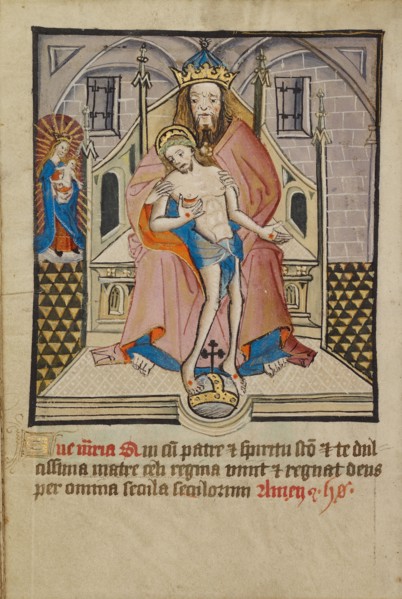 Aue m̄ria Q ui cū patre ⁊ spiritu sc̄o ⁊ te dul
cissima matre celi regina viuit ⁊ regnat deus
per omnia secula seculorum Amen